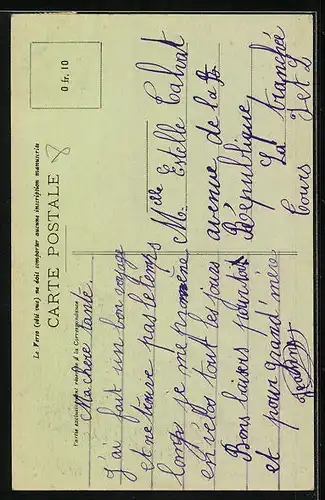 Le Verso (côté vue) ne doit comporter aucune inscription manuscrite
CARTE POSTALE
0 fr. 10
8
Partie exclusivement réservée à la Correspondance
Ma chère tante
J'ai fait un bon voyage
et ne trouve pas le temps
long je me promène
en vélo tout les jours
Bons baisers pour toi
et pour grand'mère
Mlle Estelle Calvat
avenue de la
République
La Tranchée
Tours I et L